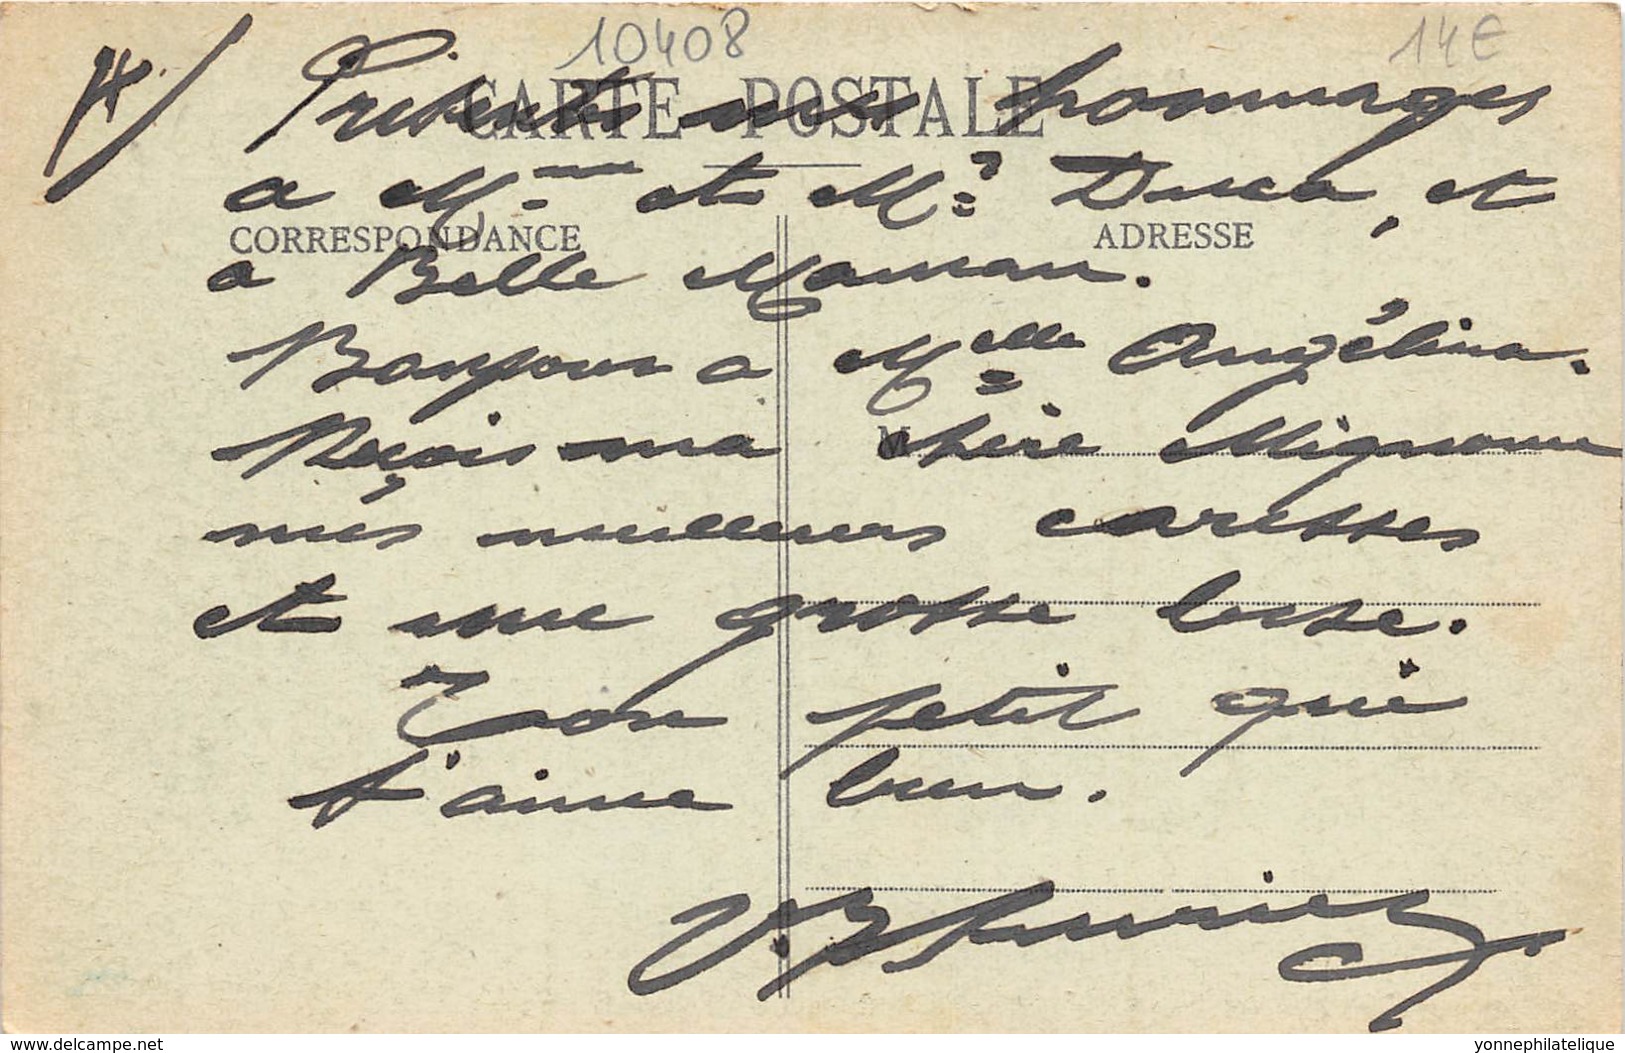 10408
14€
4/ Présente mes hommages
CARTE POSTALE
a Mme et Mr Duca, et
CORRESPONDANCE
ADRESSE
a Belle Maman.
Bonjour a Melle Angélina.
Reçois ma chère Mignonne
M
mes meilleurs caresses
et une grosse bise.
Ton petit qui
t'aime bien.
V.B
www.delcampe.net
yonnephilatelique